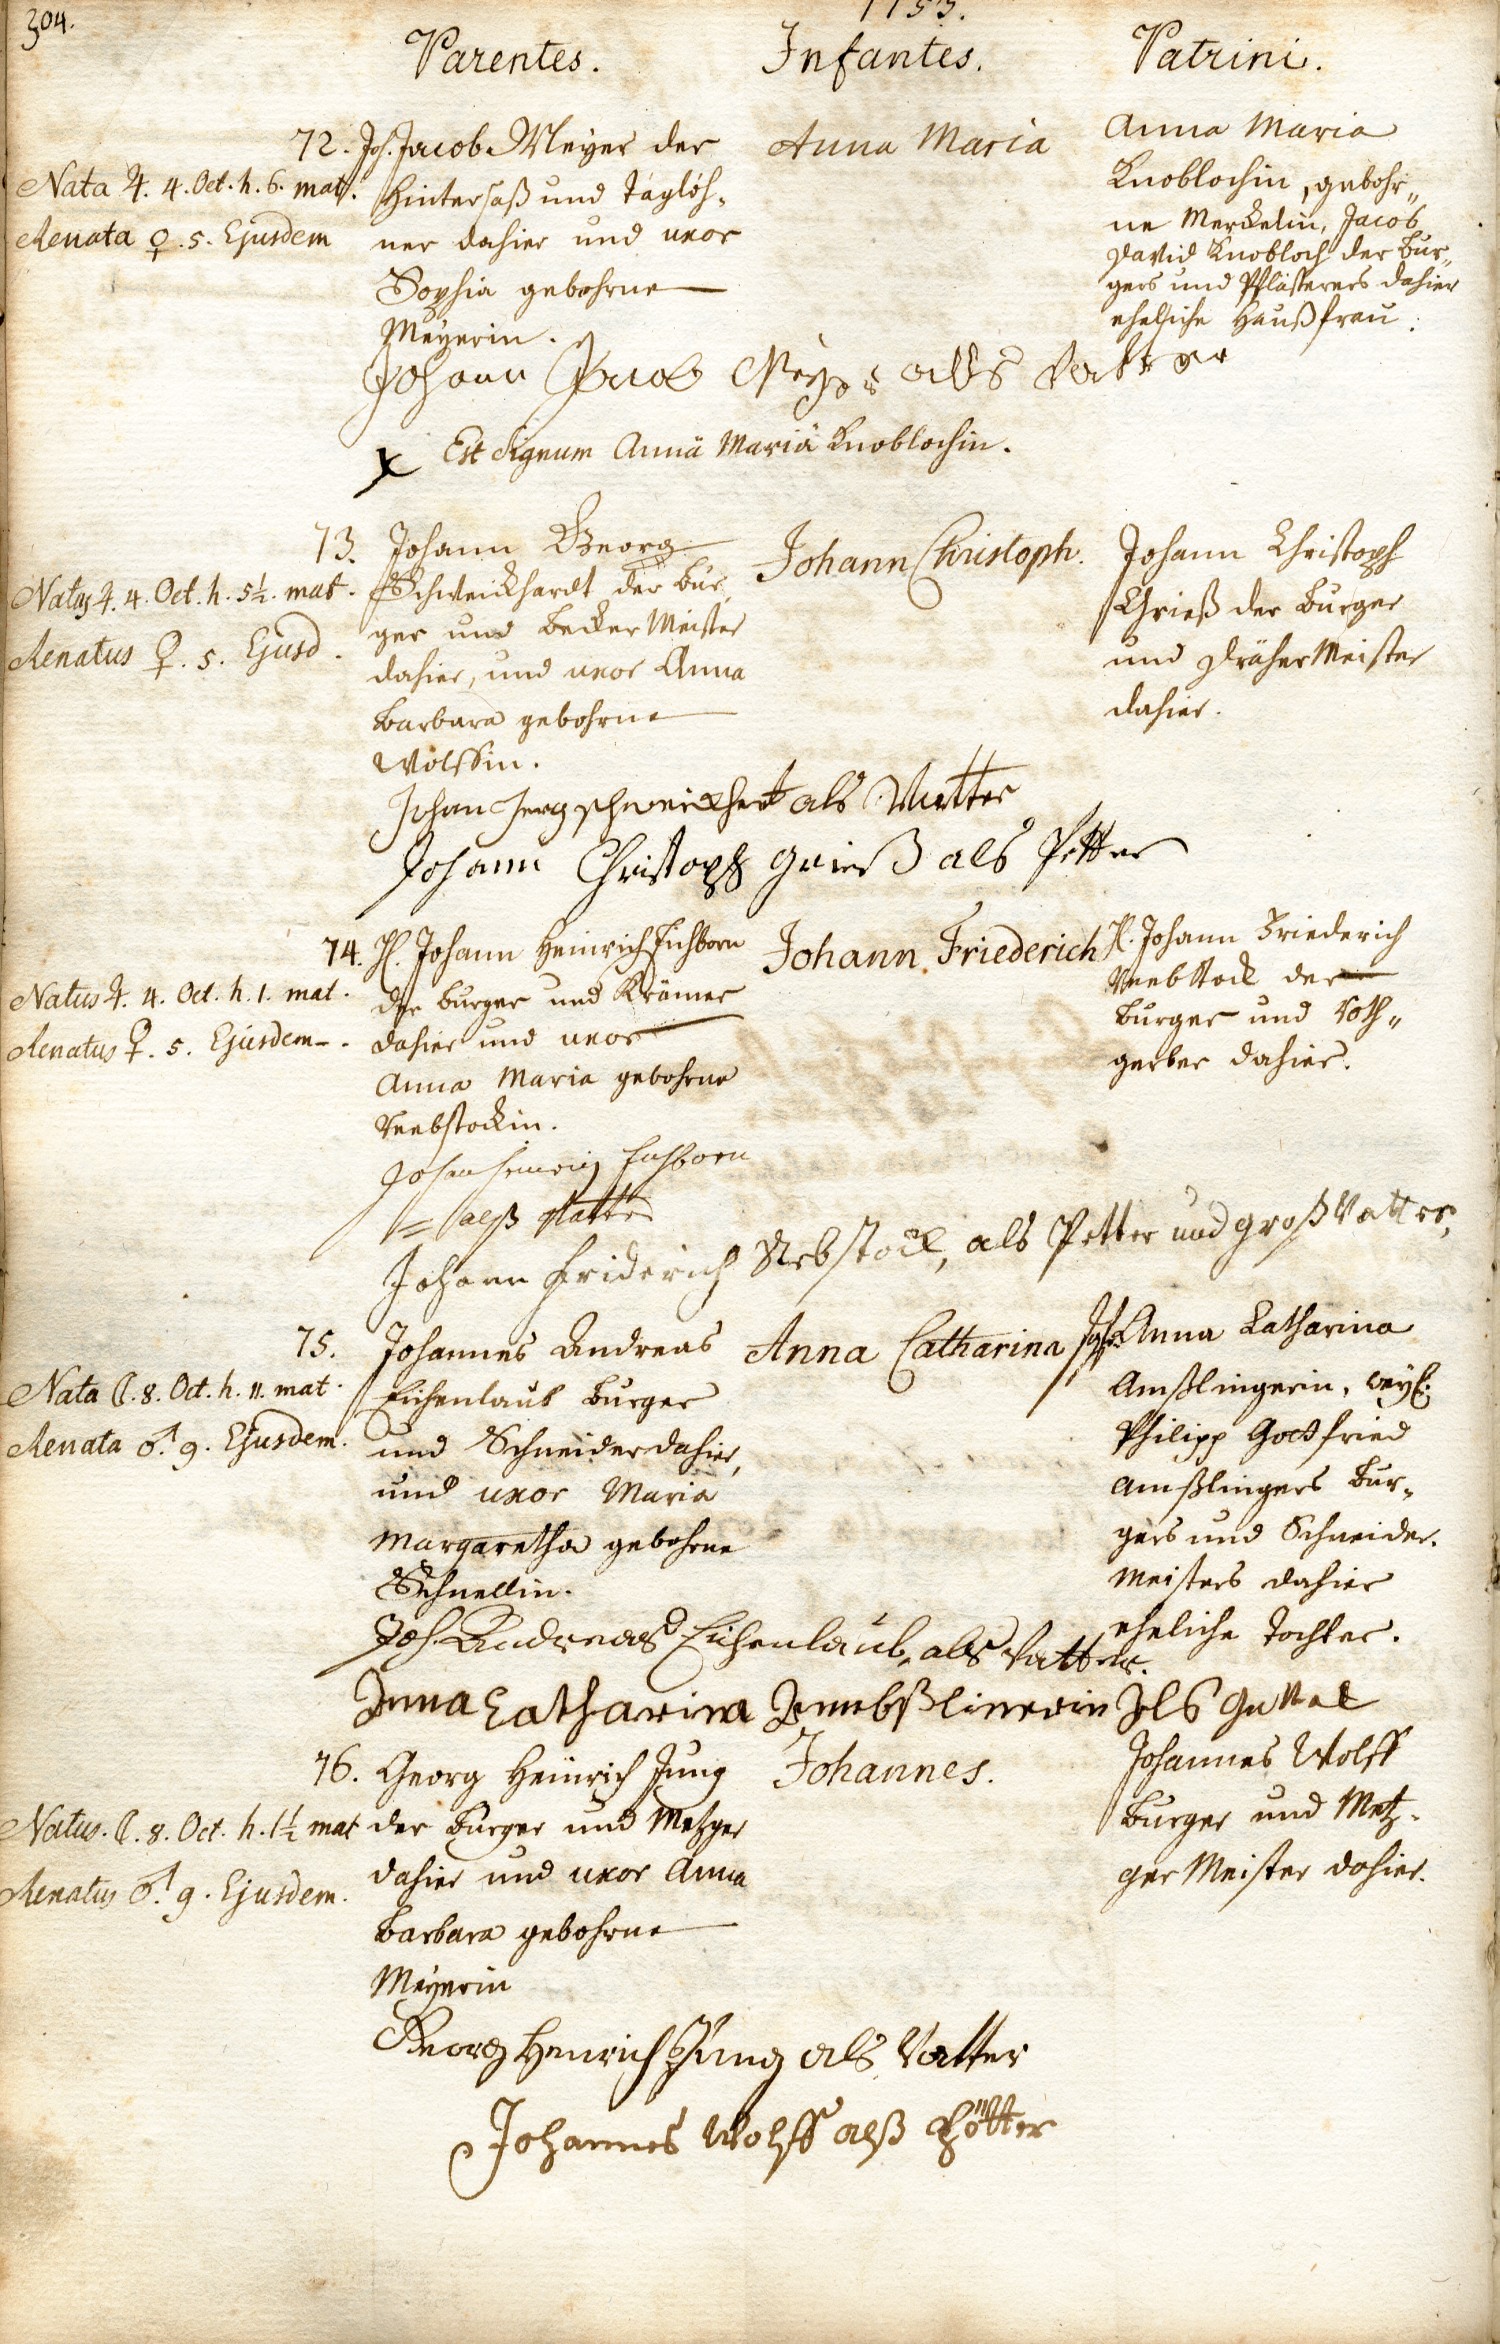 304.
1753.
Parentes. Infantes. Patrini.
72.
Nata ♃. 4. Oct. h. 6. mat.
Renata ♀. 5. Ejusdem
Joh. Jacob Meyer der
Hintersaß und Taglöh-
ner dahier und uxor
Sophia gebohrne
Meyerin.
Anna Maria
Anna Maria
Knoblochin, gebohr„
ne Merckelin, Jacob
David Knobloch der Bur„
gers und Pflästerers dahier
eheliche Haußfrau.
Johann Jacob Meyer alls Vatter
x Est Signum Annä Mariä Knoblochin.
73.
Natus ♃. 4. Oct. h. 5½. mat.
Renatus ♀. 5. Ejusd.
Johann Georg
Schweickhardt der Bur„
ger und Becker Meister
dahier, und uxor Anna
Barbara gebohrne
Wolffin.
Johann Christoph.
Johann Christoph
Grieß der Burger
und Dräher Meister
dahier.
Johan Jerg schweickhert als Vatter
Johann Christoph Grieß als Petter
74.
Natus ♃. 4. Oct. h. 1. mat.
Renatus ♀. 5. Ejusdem.
H. Johann Heinrich Eichborn
der Burger und Krämer
dahier und uxor
Anna Maria gebohrne
Reebstockin.
Johann Friederich
H. Johann Friederich
Reebstock der
Burger und Roth„
gerber dahier.
Johan Heinrich Eichborn
= alß Vatter
Johann Friderich Rebstock, als Petter und großvatter,
75.
Nata ☾. 8. Oct. h. 11. mat.
Renata ♂. 9. Ejusdem.
Johannes Andreas
Eichenlaub Burger
und Schneider dahier,
und uxor Maria
Margaretha gebohrne
Schnellin.
Anna Catharina
Jgfr. Anna Catharina
Amßlingerin, weyl.
Philipp Gottfried
Amßlingers Bur-
gers und Schneider-
Meisters dahier
eheliche Tochter.
Joh. Andreas Eichenlaub, als Vatter.
Anna Catharina Als Gettel
76.
Natus. ☾. 8. Oct. h. 1½ mat
Renatus ♂. 9. Ejusdem.
Georg Heinrich Jung
der Burger und Metzger
dahier und uxor Anna
Barbara gebohrne
Meyerin
Johannes.
Johannes Wolff
Burger und Metz-
ger Meister dahier.
Georg Henrich Jung als Vatter
Johannes Wolff alß Pötter